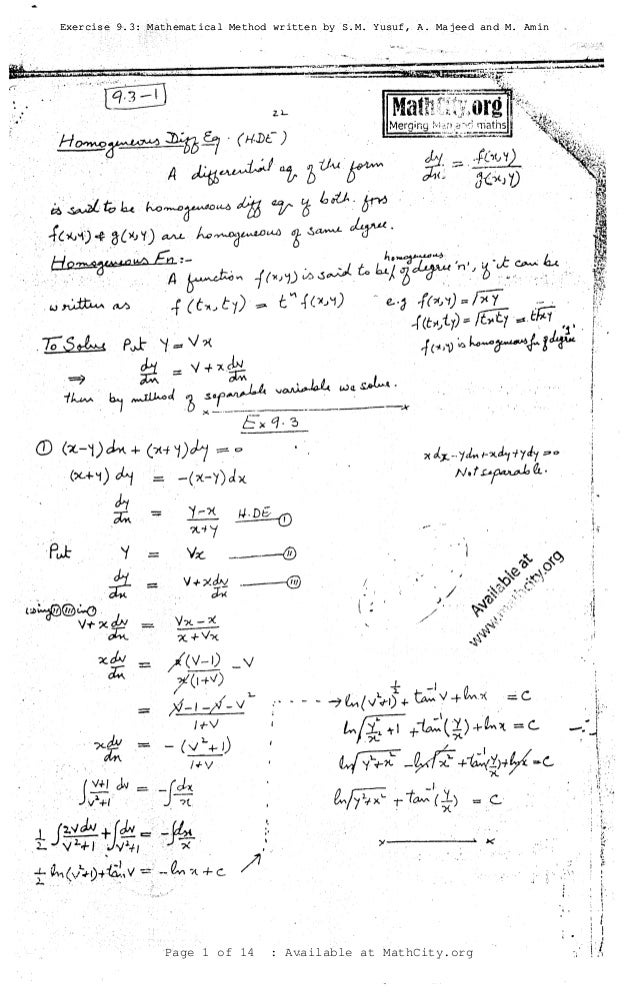 Exercise 9.3: Mathematical Method written by S.M. Yusuf, A. Majeed and M. Amin
9.3-1
22
MathCity.org
Merging Man and maths
Homogeneous Diff Eq. (H.D.E)
A differential eq. of the form dy/dx = f(x,y)/g(x,y)
is said to be homogeneous diff eqn if both fns
f(x,y) & g(x,y) are homogeneous of same degree.
Homogeneous Fn:-
A function f(x,y) is said to be homogeneous of degree 'n', if it can be
written as f(tx,ty) = tⁿ f(x,y) e.g f(x,y) = √xy
f(tx,ty) = √txty = t√xy
f(x,y) is homogeneous fn of degree '1'
To Solve Put Y = Vx
⇒ dy/dx = V + x dv/dx
then by method of separable variable we solve.
Ex 9.3
① (x-y)dx + (x+y)dy = 0
xdx-ydx+xdy+ydy=0
Not separable.
(x+y) dy = -(x-y)dx
dy/dx = y-x/x+y H.DE ①
Put Y = Vx ②
dy/dx = V + x dv/dx ③
Available at
www.mathcity.org
Using ② ③ in ①
V + x dv/dx = Vx-x/x+Vx
x dv/dx = x(V-1)/x(1+V) - V
= V-1-V-V²/1+V
x dv/dx = -(V²+1)/1+V
∫ V+1/V²+1 dv = -∫ dx/x
1/2 ∫ 2Vdv/V²+1 + ∫ dv/V²+1 = -∫ dx/x
1/2 ln(V²+1) + tan⁻¹V = -ln x + c
→ ln(V²+1)^1/2 + tan⁻¹V + ln x = C
ln√(y²/x² + 1) + tan⁻¹(y/x) + ln x = C
ln√(y²+x²) - ln√x² + tan⁻¹(y/x) + ln x = C
ln√(y²+x²) + tan⁻¹(y/x) = C
Page 1 of 14 : Available at MathCity.org